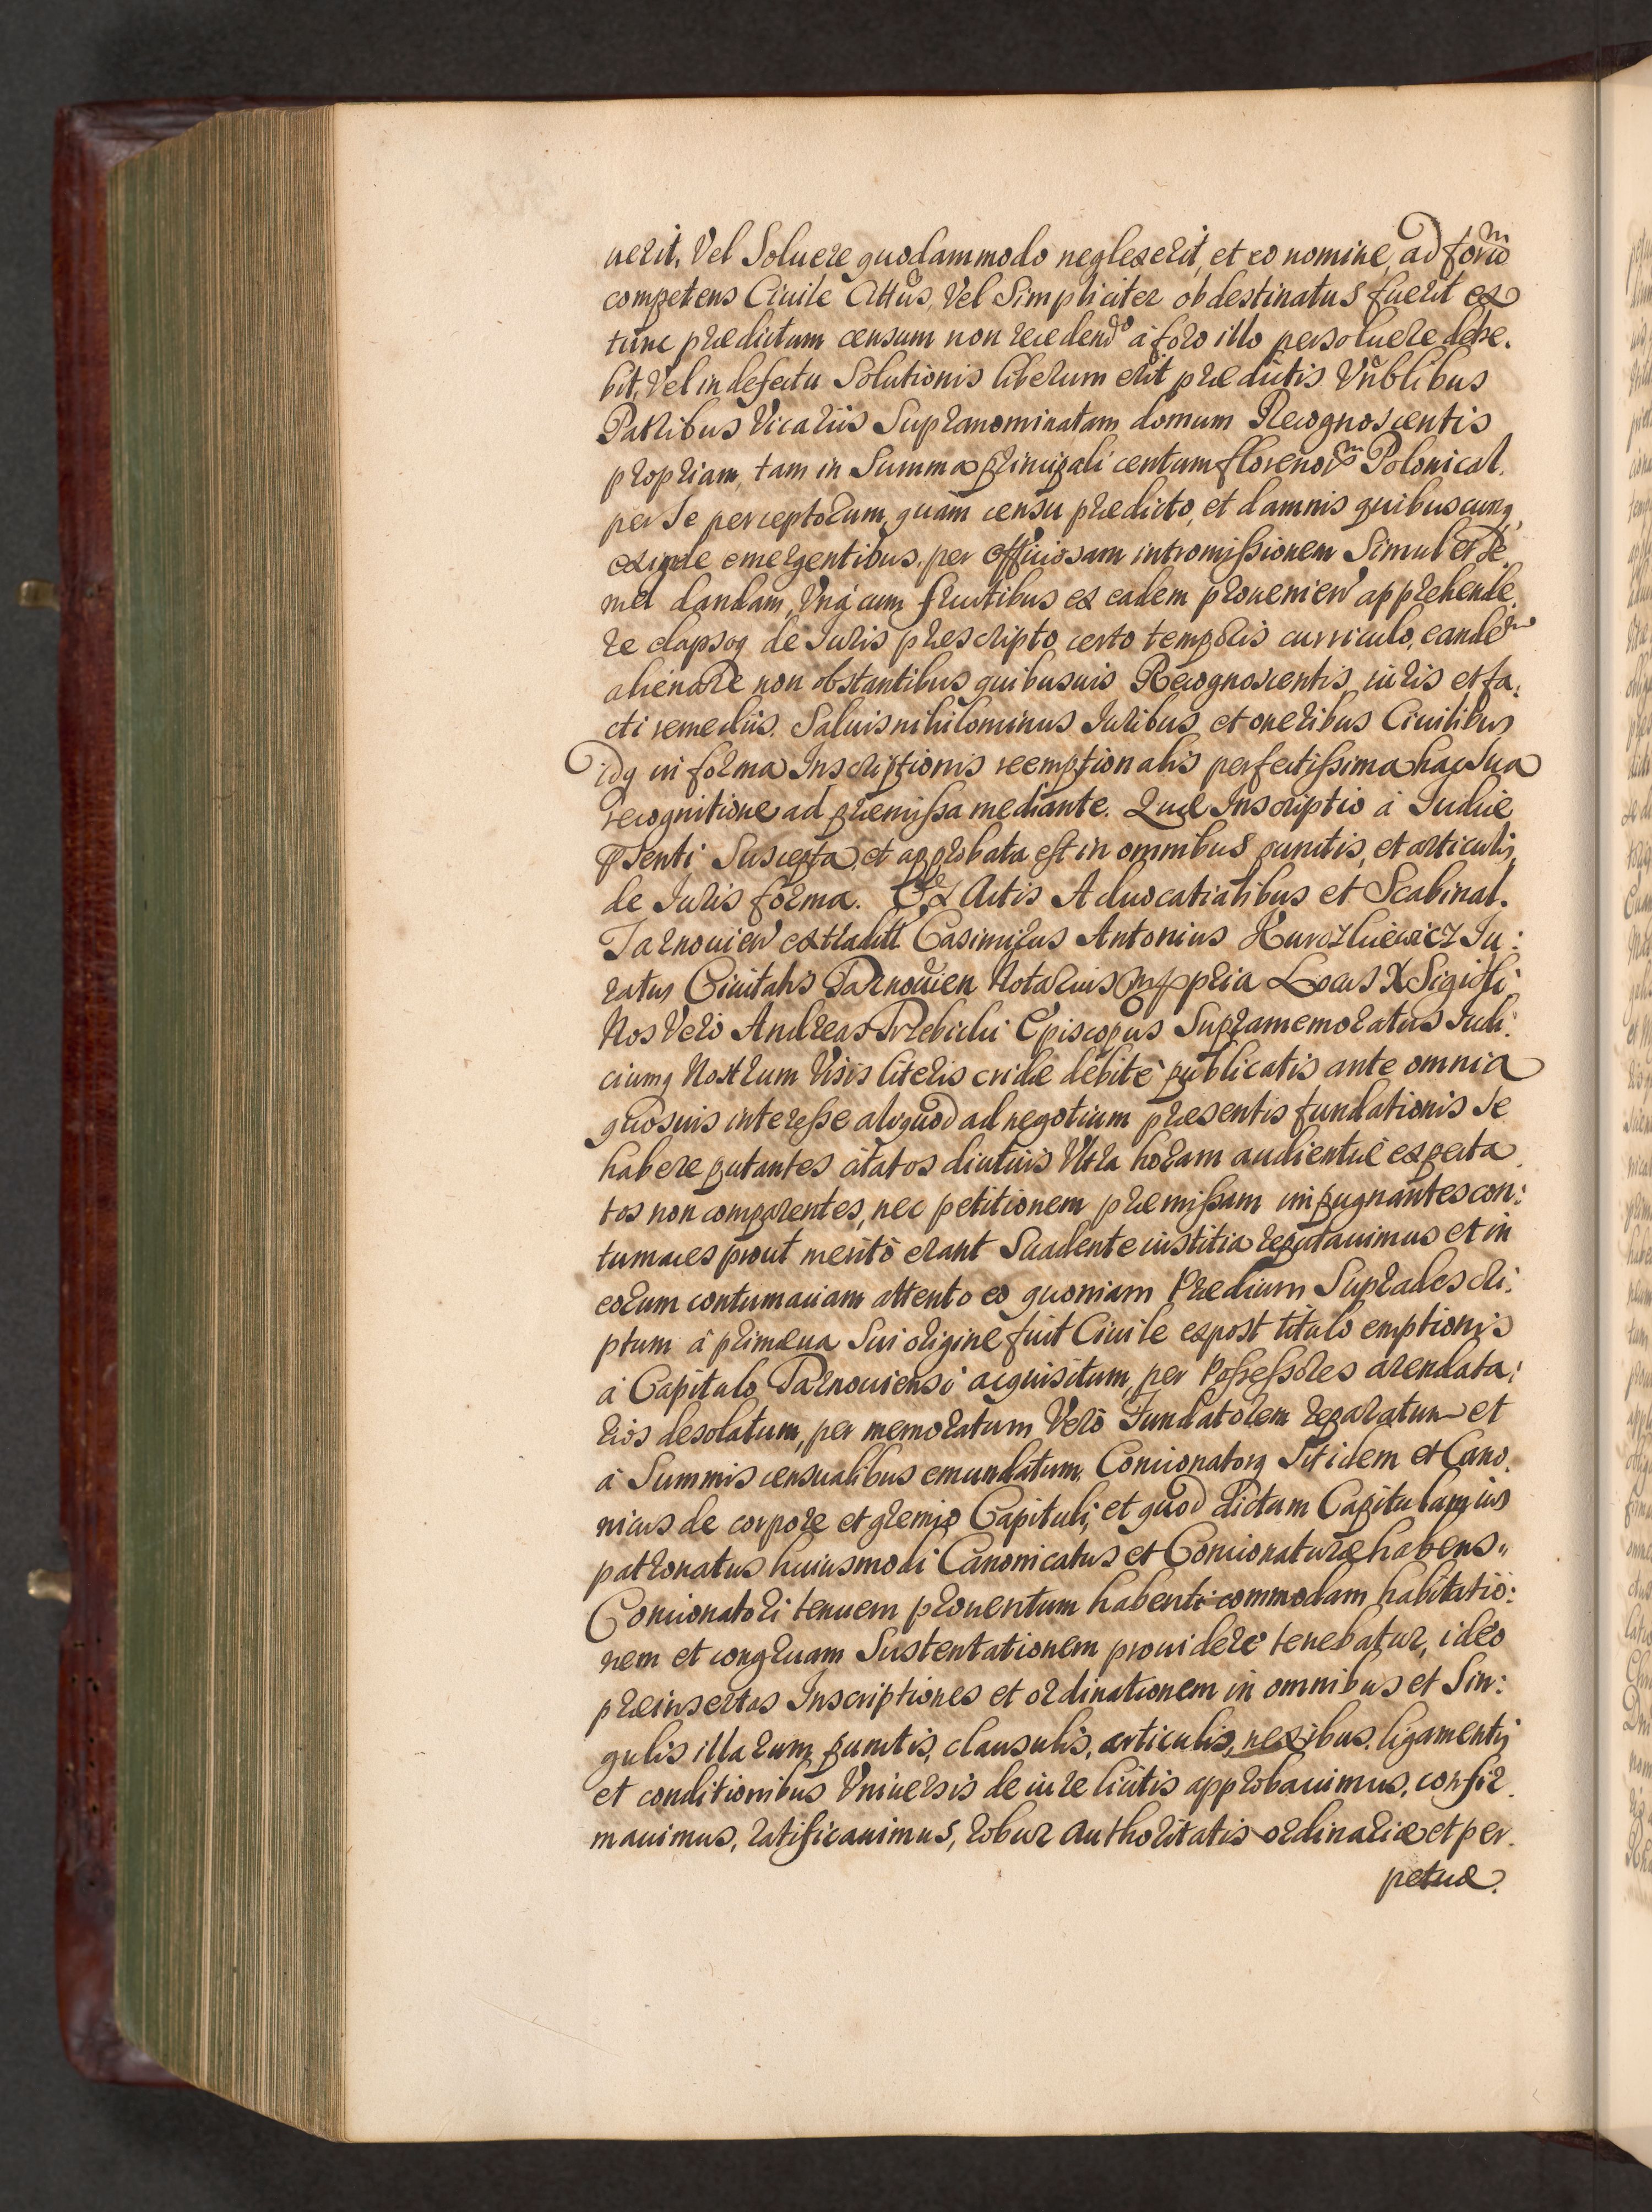 uerit, Vel Soluere quodammodo neglexerit, et eo nomine, ad foru͠m
competens Ciuile Attũs, Vel Simpliciter obdestinatus fuerit ex
tunc prædictum censum non recedendo à foro illo persoluere debe.
bit, Vel in defectu Solutionis liberum erit prædictis Vñblibus
Patribus Vicariis Supranominatam domum Recognoscentis
propriam, tam in Summa principali centum florenorum Polonical.
per Se perceptorum, quàm censu prædicto, et damnis quibuscunq,
exinde emergentibus, per officiosam intromißionem Simul et Se.
mel dandam, Vnà cum fructibus ex eadem prouenien apprehende.
re elapsoq de Iuris præscripto certo temporis curriculo, eandem
alienare non obstantibus quibusuis Recognoscentis iuris et fa.
cti remediis. Saluis nihilominus Iuribus et oneribus Ciuilibus
idq in forma Inscriptionis reemptionalis perfectißima hac Sua
recognitione ad præmißa mediante. Quæ Inscriptio à Iudicie
pſenti Suscepta et approbata est in omnibus punctis, et articulis
de Iuris forma. Ex Actis Aduocatialibus et Scabinal.
Tarnouien extradit Casimirus Antonius Kurozluiewicz Iu:
ratus Ciuitatis Tarnouien Notarius mppria Locus X Sigilli.
Nos Vero Andreas Trzebicki Episcopus Supramemoratus Iudi:
ciumq Nostrum Visis literis cridæ debite publicatis ante omnia
quosuis intereße aliquod ad negotium præsentis fundationis Se
habere putantes citatos diutius Vltra horam audientiæ expecta
tos non comparentes, nec petitionem præmißam impugnantes con:
tumaces prout meritò erant Suadente iustitia reputauimus et in
eorum contumaciam attento eo quoniam Prædium Supradescri:
ptum à primæua Sui origine fuit Ciuile expost titulo emptionis
à Capitulo Tarnouiensi acquisitum, per Poßeßores arendata:
rios desolatum, per memoratum Verò Fundatorem reparatum et
à Summis censualibus emundatum, Concionatorq Sit idem et Cano.
nicus de corpore et gremio Capituli, et quod dictam Capitulum ius
patronatus huiusmodi Canonicatus et Concionaturæ habens"
Concionatori tenuem prouentum habenti commodam habitatio:
nem et congruam Sustentationem prouidere tenebatur, ideo
præinsertas Inscriptiones et ordinationem in omnibus et Sin:
gulis illarum punctis, clausulis, articulis, nexibus, ligamentis
et conditionibus Vniuersis de iure licitis approbauimus, confir.
mauimus, ratificauimus, robur authoritatis ordinariæ et per.
petuæ.